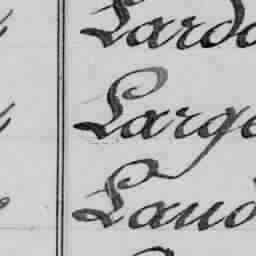 Lardo
Large
Laud